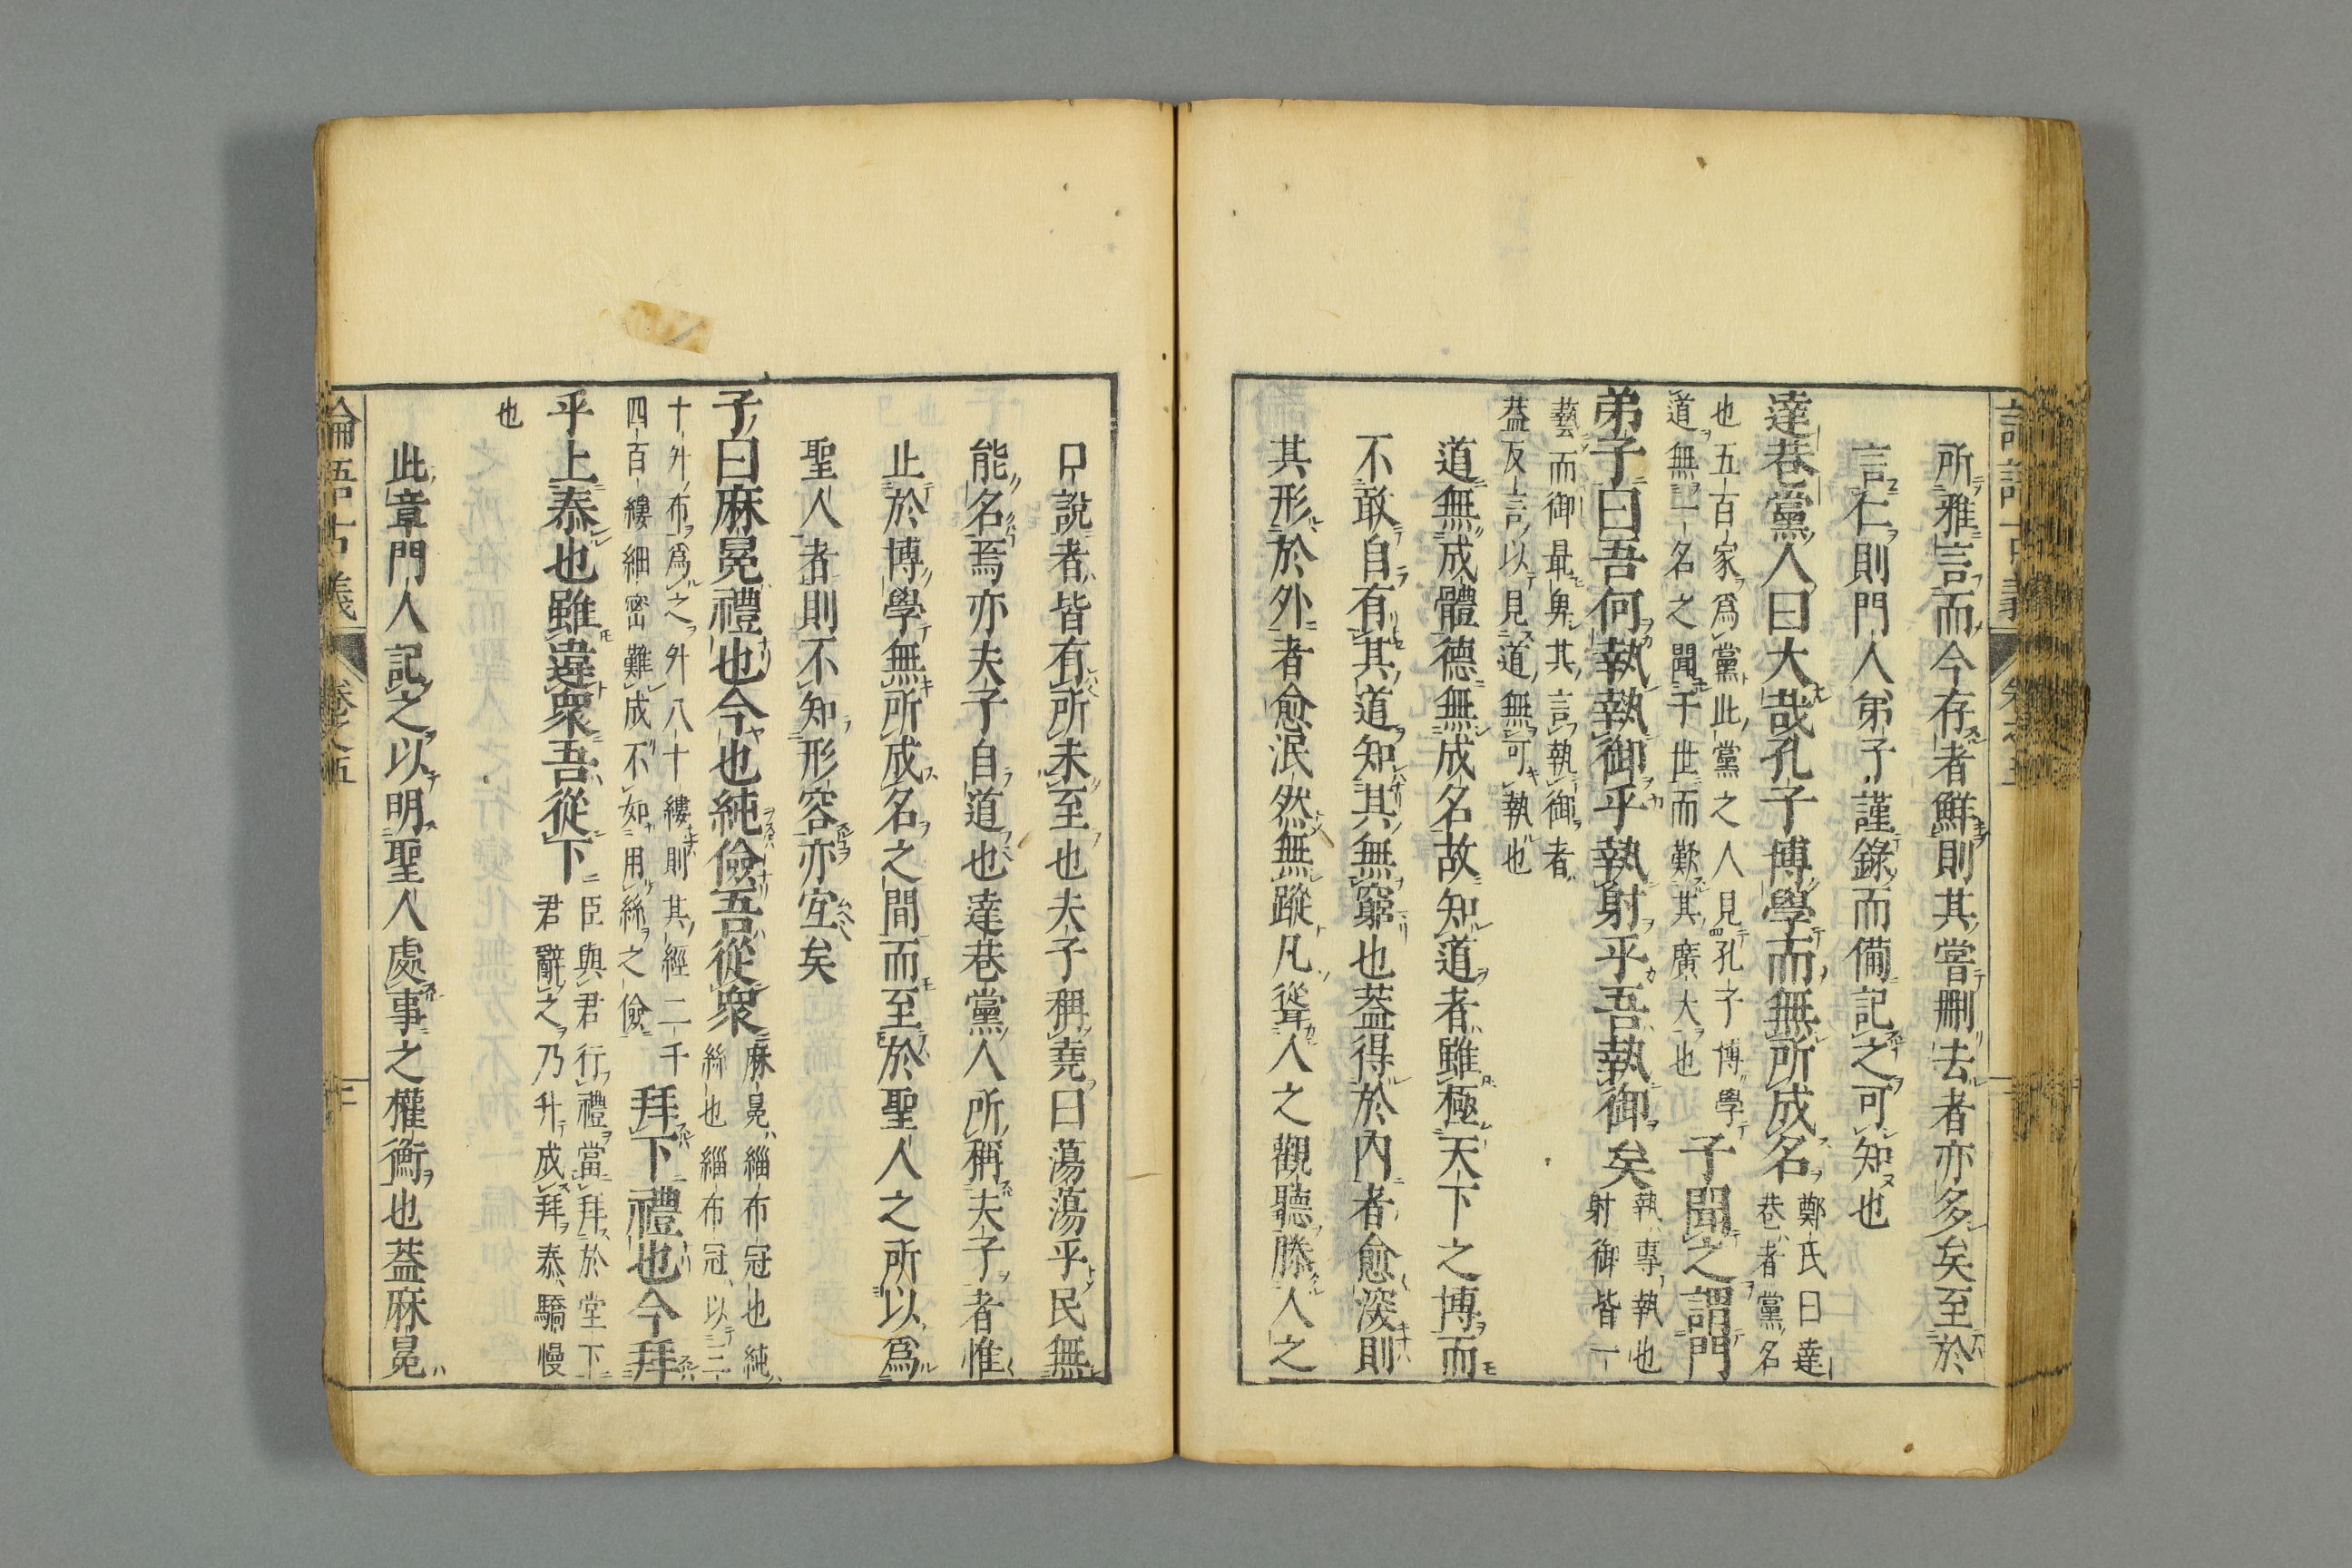 所雅言而今存者鮮則其嘗刪去者亦多矣至於
言仁則門人弟子謹錄而備記之可知也
達巷黨人曰大哉孔子博學而無所成名
鄭氏曰達
巷者黨名
也五百家爲黨此黨之人見孔子博學
道無一名之聞于世而歎其廣大也
子聞之謂門
弟子曰吾何執執御乎執射乎吾執御矣
執專執也
射御皆一
藝而御最卑其言執御者
蓋反言以見道無可執也
道無成體德無成名故知道者雖極天下之博而
不敢自有其道知其無窮也蓋得於內者愈深則
其形於外者愈泯然無蹤凡聳人之觀聽勝人之
口說者皆有所未至也夫子稱堯曰蕩蕩乎民無
能名焉亦夫子自道也達巷黨人所稱夫子者惟
止於博學無所成名之間而至於聖人之所以爲
聖人者則不知形容亦宜矣
子曰麻冕禮也今也純儉吾從衆
麻冕緇布冠也純
絲也緇布冠以三
十升布爲之升八十縷則其經二千
四百縷細密難成不如用絲之儉
拜下禮也今拜
乎上泰也雖違衆吾從下
臣與君行禮當拜於堂下
君辭之乃升成拜泰驕慢
也
此章門人記之以明聖人處事之權衡也蓋麻冕
論語古義
卷之五